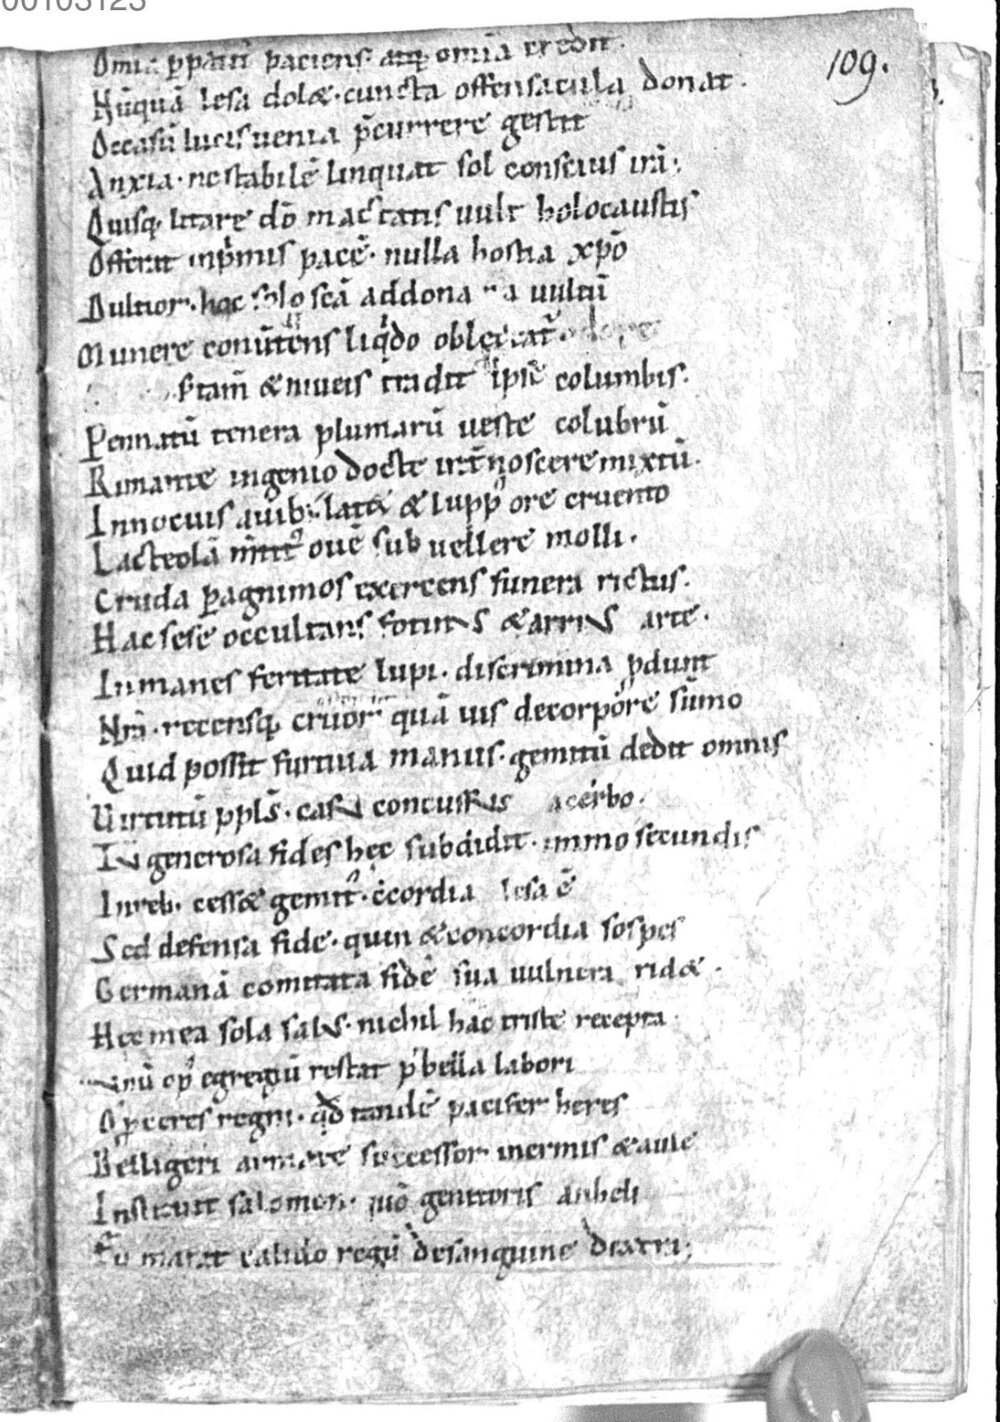 00103123
109.
Omīa ꝑpetiī paciens· atqꝫ omīa credit·
Nūquā lesa dolet· cuncta offensacula donat·
Occasū lucis uenia p̄currere gestit
Anxia· ne stabilē linquat sol conscius irā·;
Quisqꝫ litare dō mactatis uult holocaustis
Offerat inpͥmis pacē· nulla hostia xp̄o
Dultior· hac solo scā ad dona uultū
Munere conūtens liqͥdo oblectat᷑·
etiam & niueis tradit ipse columbis·
Pennatū tenera plumarū ueste colubrū
Rimante ingenio docte int̄noscere mixtū·
Innocuis auibꝫ· latet & lupꝰ ore cruento
Lacteolā m̄titꝰ ouē sub uellere molli·
Cruda ꝑ agninos exercens funera rictus·
Hac sese occultans fotinus & arrius arte·
Inmanes feritate lupi· discrimina ꝓdunt
Nrā· recensqꝫ cruor quāuis de corpore sūmo
Quid possit furtiua manus· gemitū dedit omnis
Uirtutū ppl̄s· casu concussus acerbo·
IN generosa fides hec subdidit· immo secundis
In reb· cesset gemitꝰ· c̄cordia lesa ē
Sed defensa fide· quin & concordia sospes
Germanā comitata fidē sua uulnera ridet·
Hec mea sola salus· nichil hac triste recepta·
Vnū opꝰ egregiū restat p᷑ bella labori
O ꝓceres regni· qd̄ tandē pacifer heres
Belligeri armate successor inermis & aule
Instituit salomon· quō genitoris anheli
Fumarat calido regū de sanguine dextra·;